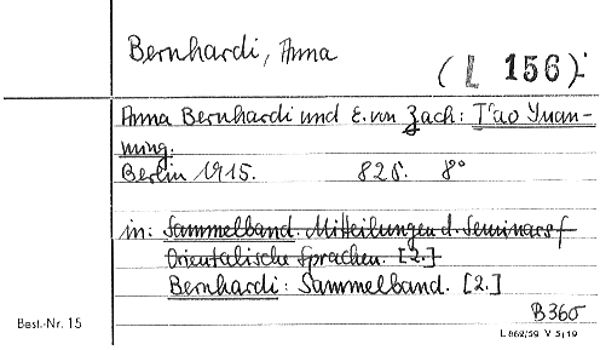 Bernhardi, Anna
(L 156):
Anna Bernhardi und E. von Zach: T'ao Yuan-
ming.
Berlin 1915. 82S. 8°
in: Sammelband. Mitteilungen d. Seminars f
Orientalische Sprachen. [2.]
Bernhardi: Sammelband. [2.]
B360
Best.-Nr. 15
L 862/59 V 5/19